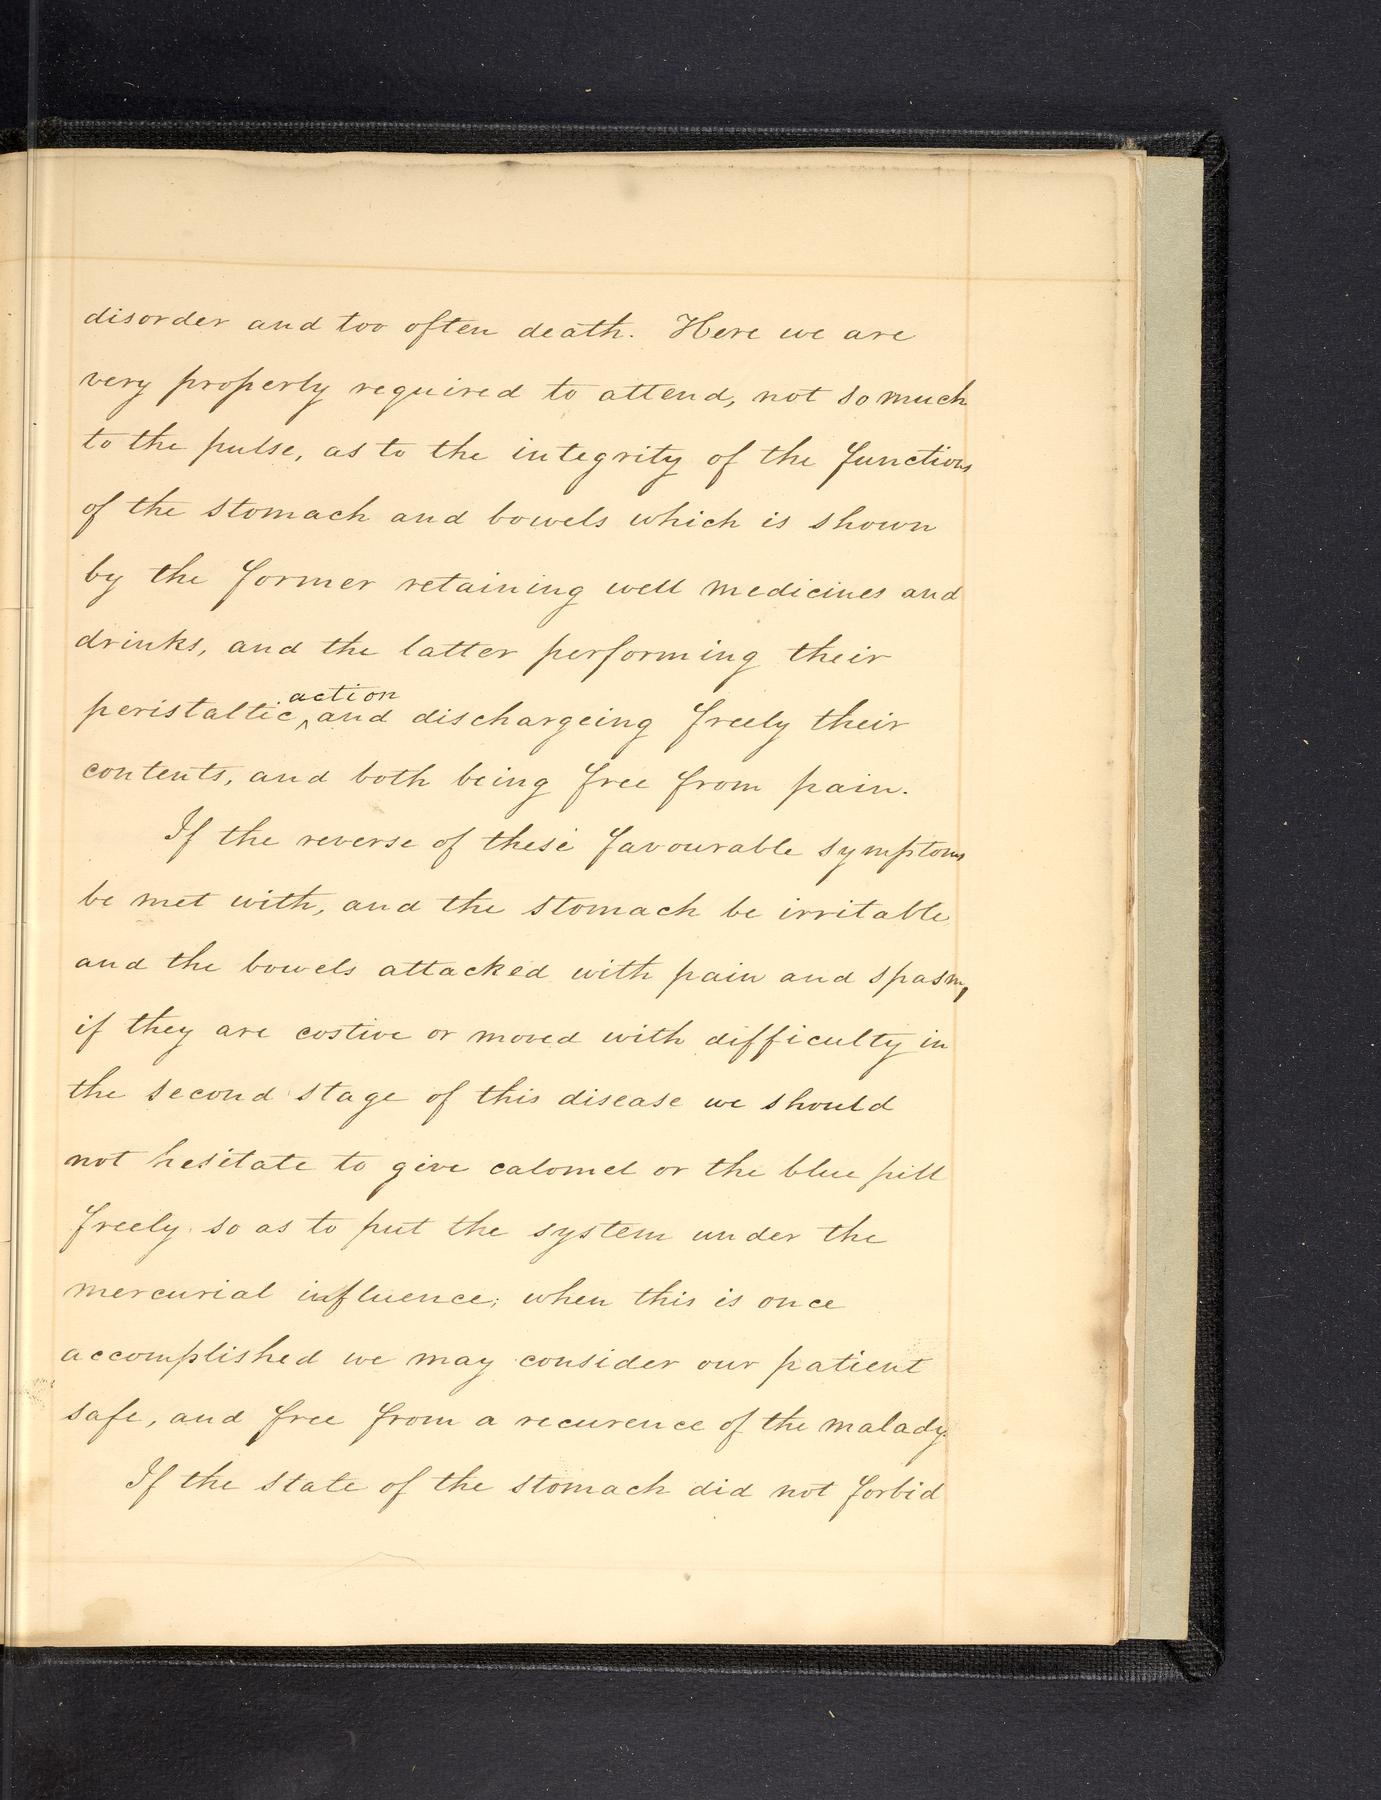 disorder and too often death. Here we are
very properly required to attend, not so much
to the pulse, as to the integrity of the functions
of the stomach and bowels which is shown
by the former retaining well medicines and
drinks, and the latter performing their
peristaltic action and dischargeing freely their
contents, and both being free from pain.
If the reverse of these favourable symptoms
be met with, and the stomach be irritable
and the bowels attacked with pain and spasm,
if they are costive or moved with difficulty in
the second stage of this disease we should
not hesitate to give calomel or the blue pill
freely so as to put the system under the
mercurial influence; when this is once
accomplished we may consider our patient
safe, and free from a recurence of the malady.
If the state of the stomach did not forbid